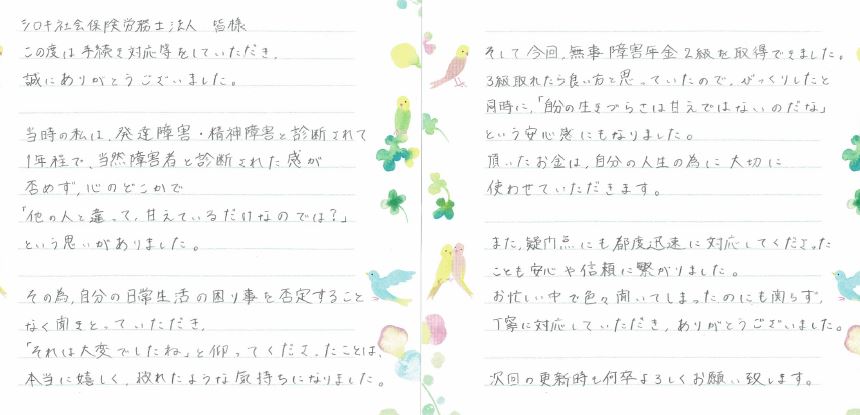 シロキ社会保険労務士法人 皆様
この度は手続き対応等をしていただき、
誠にありがとうございました。
当時の私は、発達障害・精神障害と診断されて
1年程で、当然障害者と診断された感が
否めず、心のどこかで
「他の人と違って、甘えているだけなのでは?」
という思いがありました。
その為、自分の日常生活の困り事を否定すること
なく聞きとっていただき、
「それは大変でしたね」と仰ってくださったことは、
本当に嬉しく、救れたような気持ちになりました。
そして今回、無事障害年金2級を取得できました。
3級取れたら良い方と思っていたので、びっくりしたと
同時に、「自分の生きづらさは甘えではないのだな」
という安心感にもなりました。
頂いたお金は、自分の人生の為に大切に
使わせていただきます。
また、疑問点にも都度迅速に対応してくださった
ことも安心や信頼に繋がりました。
お忙しい中で色々聞いてしまったのにも関らず、
丁寧に対応していただき、ありがとうございました。
次回の更新時も何卒よろしくお願い致します。